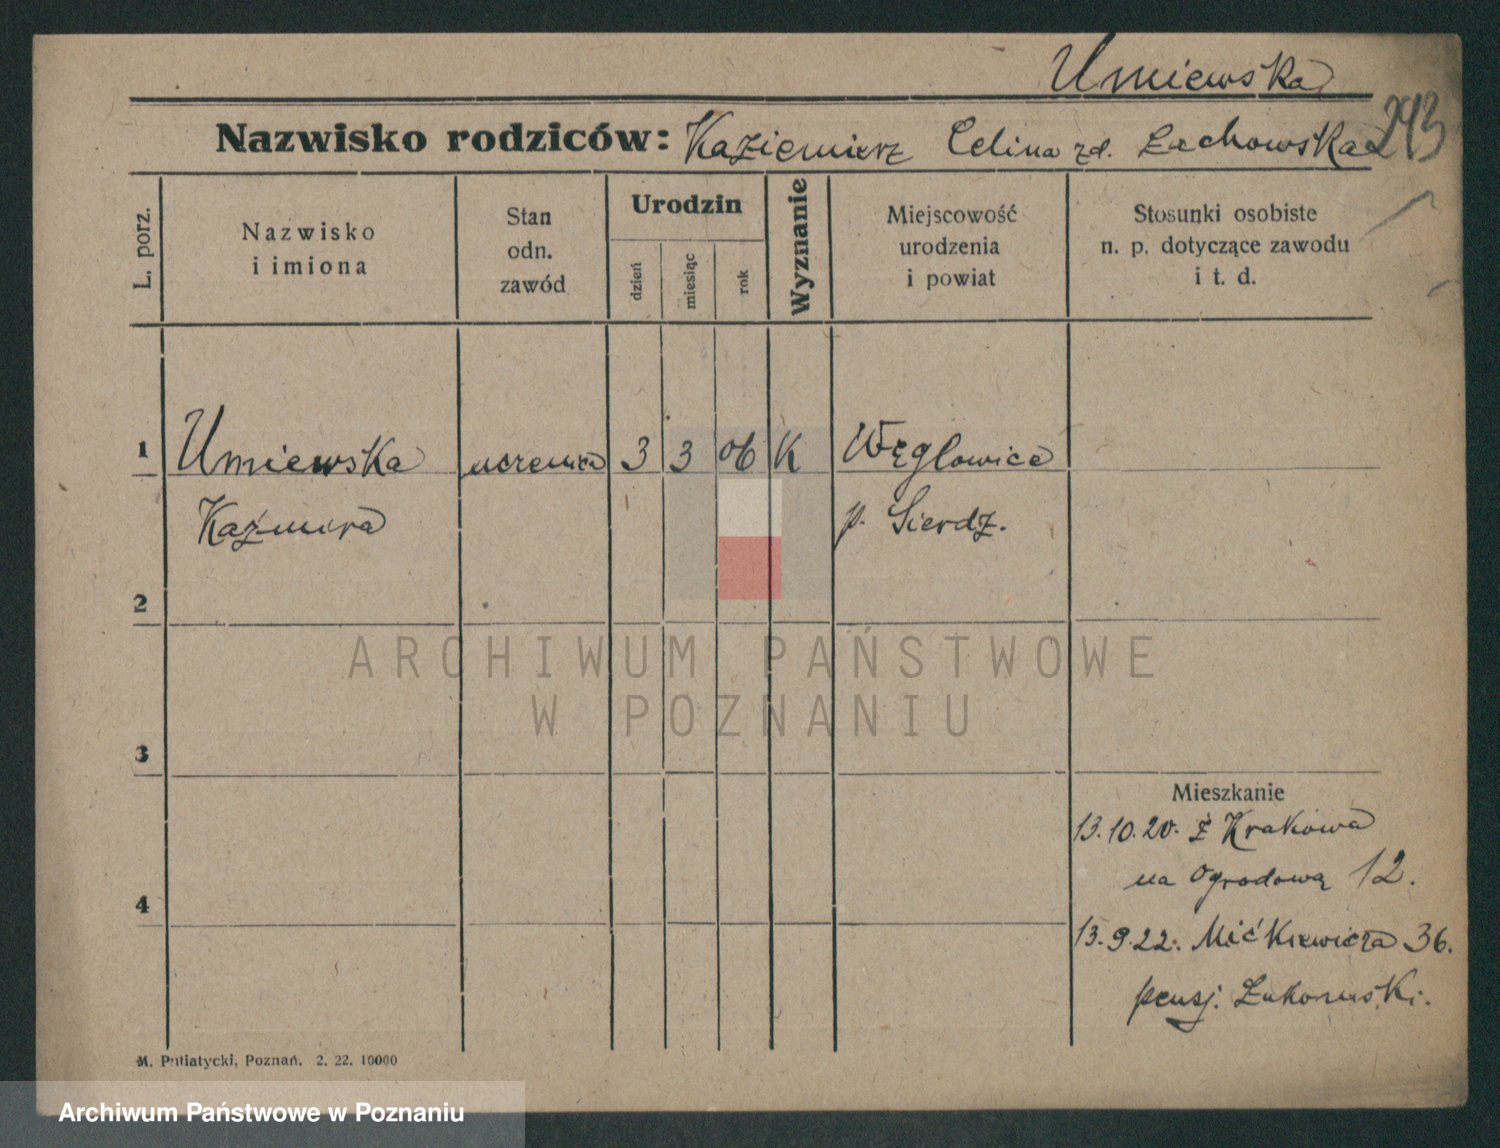 Umiewska
243
Nazwisko rodziców: Kazimierz Celina zd. Lachowska
L. porz.
Nazwisko
i imiona
Stan
odn.
zawód
Urodzin
dzień
miesiąc
rok
Wyznanie
Miejscowość
urodzenia
i powiat
Stosunki osobiste
n. p. dotyczące zawodu
i t. d.
1 Umiewska uczenica 3 3 06 K Węglowice
Kaźmira p. Sierdz.
2
ARCHIWUM PAŃSTWOWE
W POZNANIU
3
Mieszkanie
13.10.20. z Krakowa
na Ogrodową 12.
4
13.9.22. Mickiewicza 36.
pensj.
M. Putiatycki, Poznań. 2. 22. 10000
Archiwum Państwowe w Poznaniu